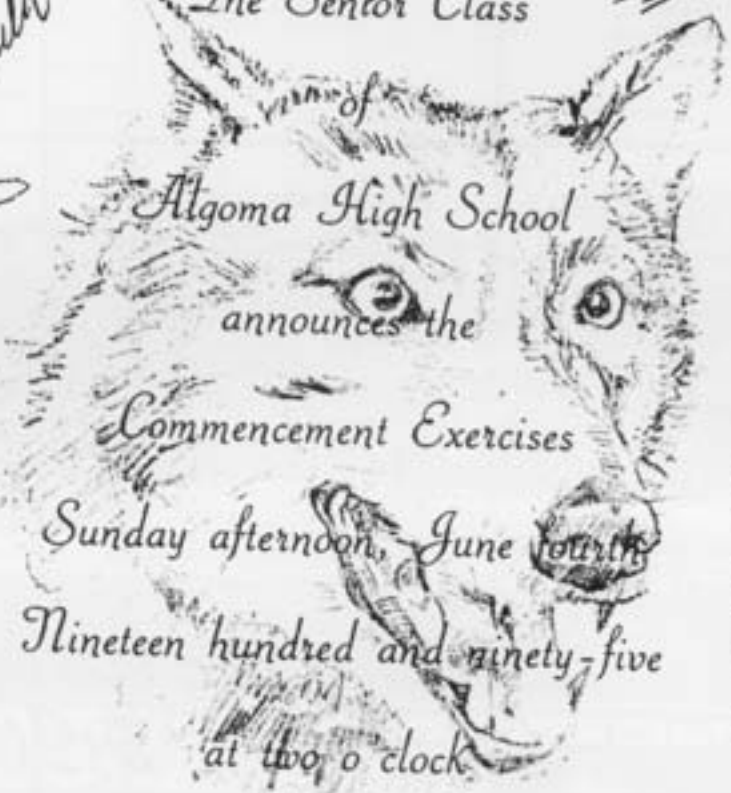 The Senior Class
of
Algoma High School
announces the
Commencement Exercises
Sunday afternoon, June fourth
Nineteen hundred and ninety-five
at two o clock